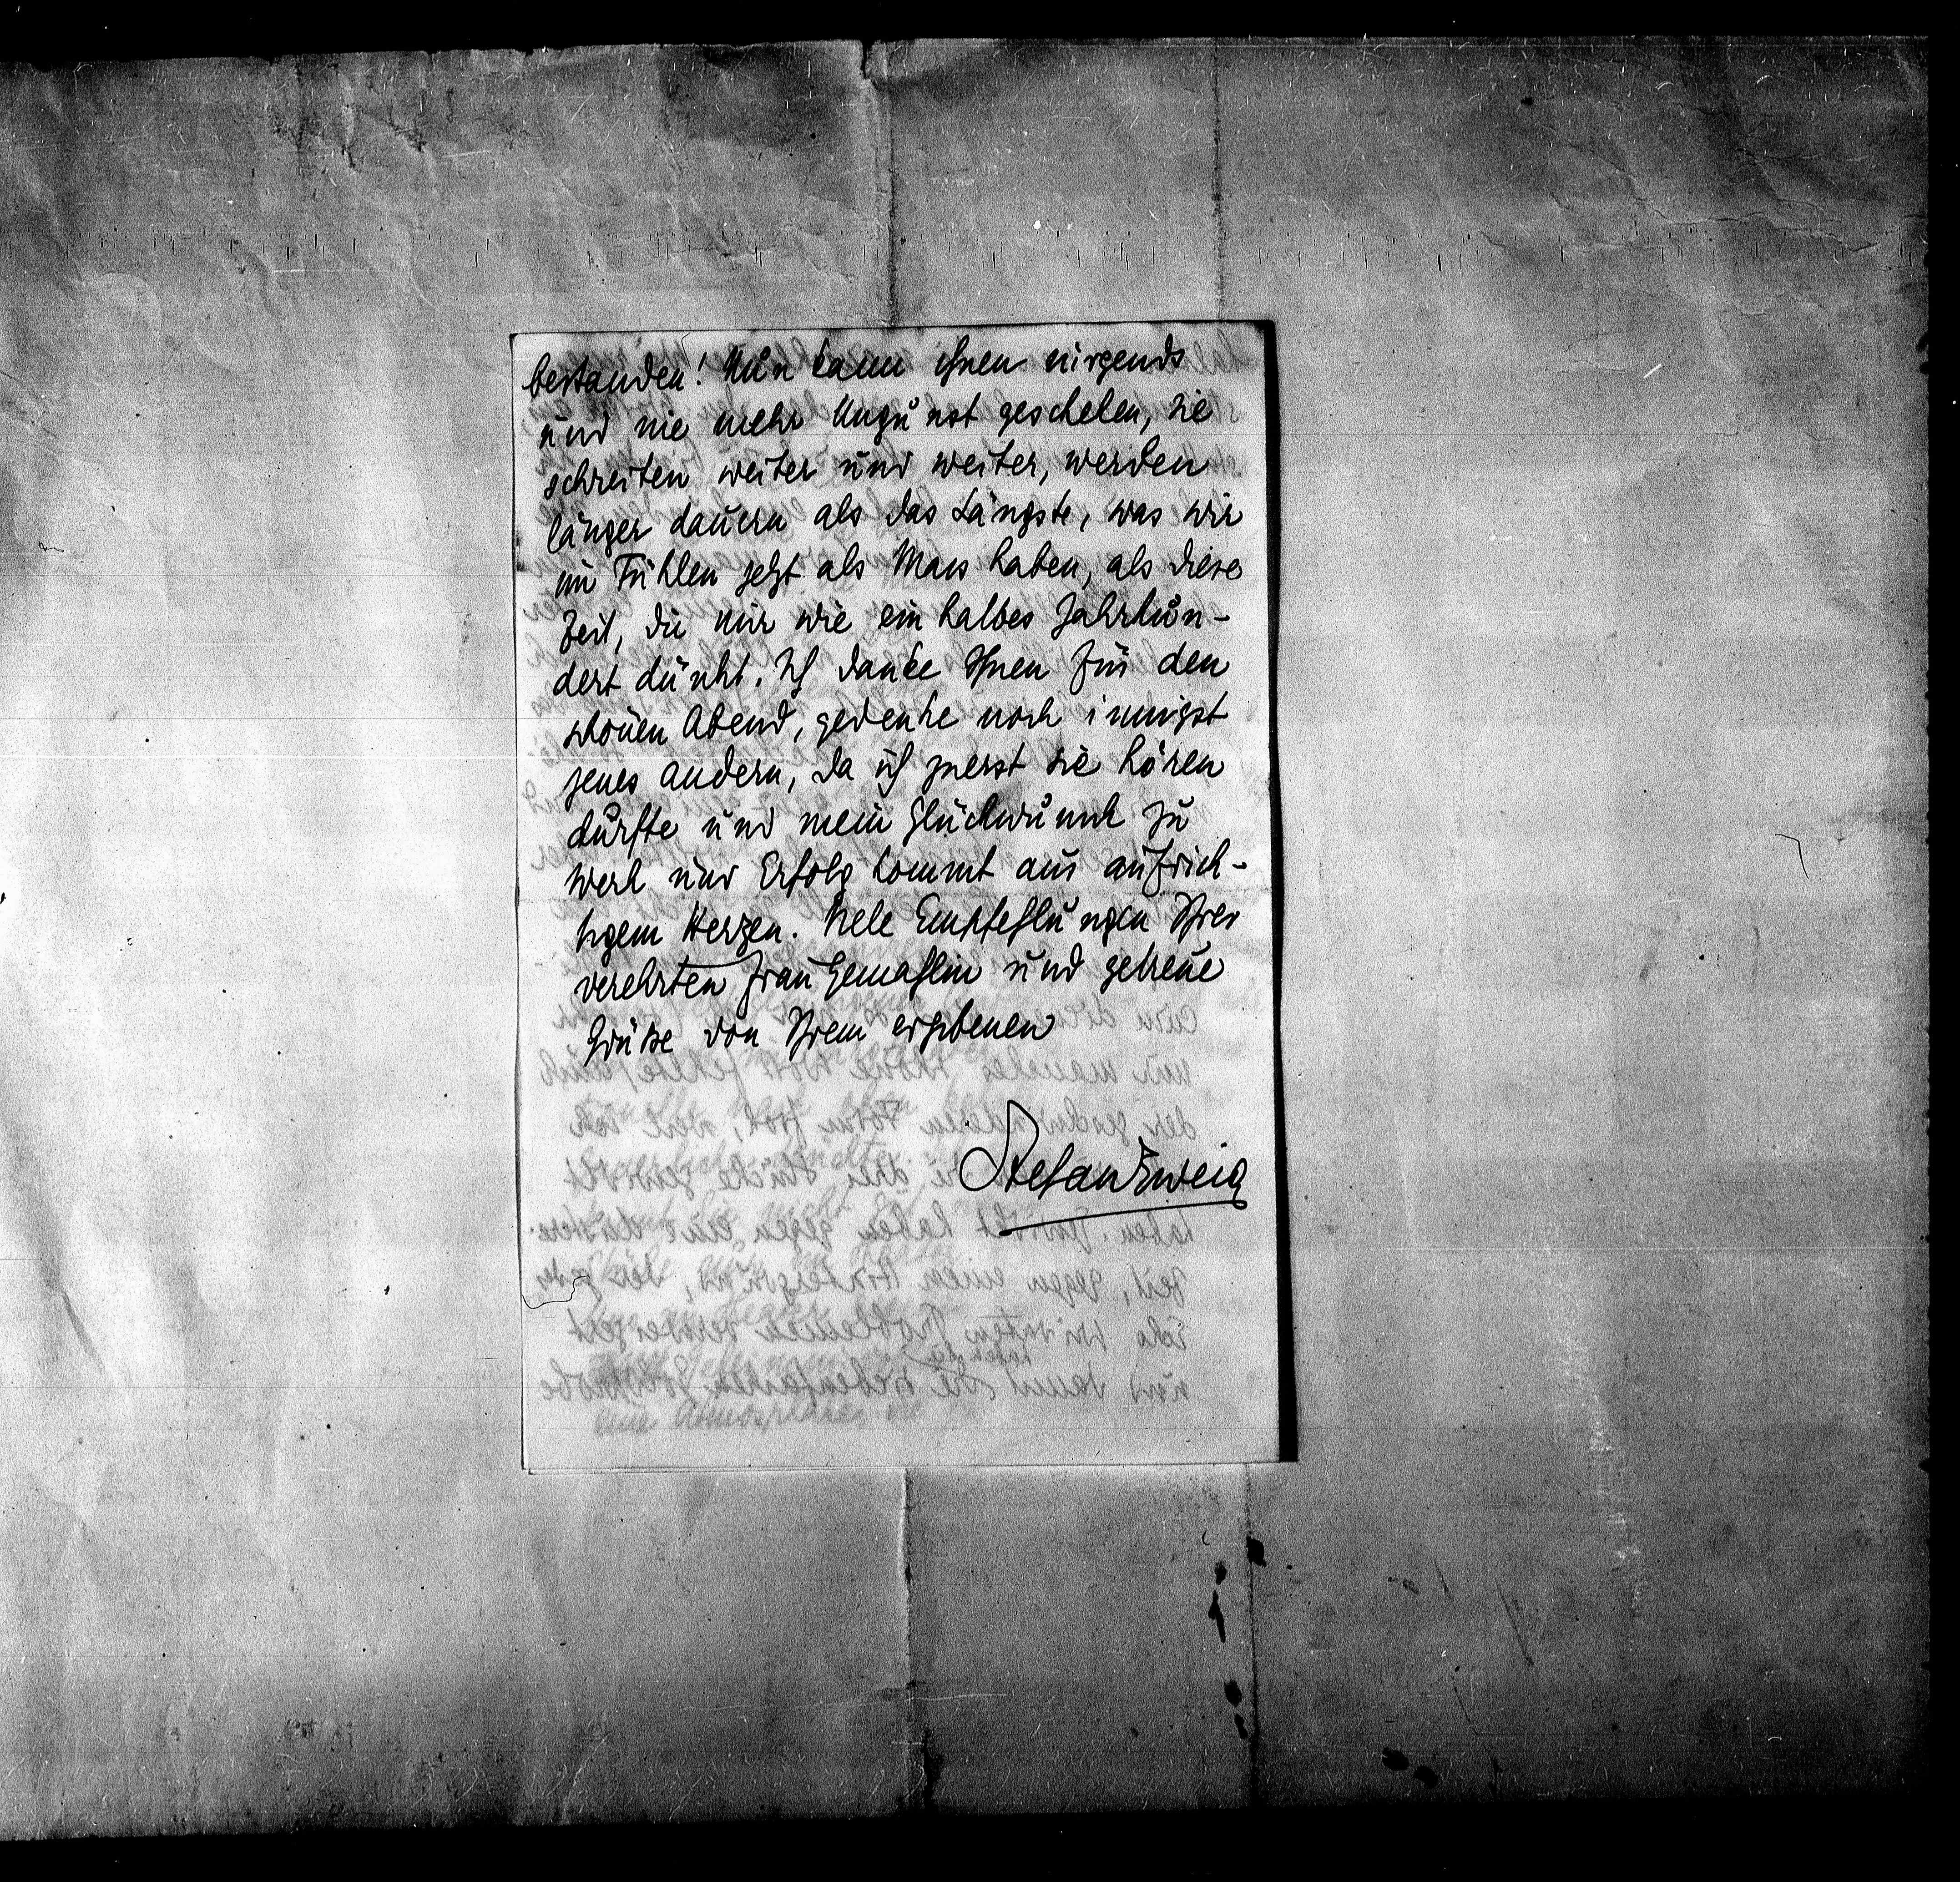 bestanden! Nun kann ihnen nirgends
und nie mehr Ungunst geschehen, sie
schreiten weiter und weiter, werden
länger dauern als das Längste, was wir
im Fühlen jetzt als Mass haben, als diese
Zeit, die mir wie ein halbes Jahrhun-
dert dünkt. Ich danke Ihnen für den
schönen Abend, gedenke noch innigst
jenes andern, da ich zuerst sie hören
durfte und mein Glückwunsch zu
Werk und Erfolg kommt aus aufrich-
tigem Herzen. Viele Empfehlungen Ihrer
verehrten Frau Gemahlin und getreue
Grüße von Ihrem ergebenen
Stefan Zweig